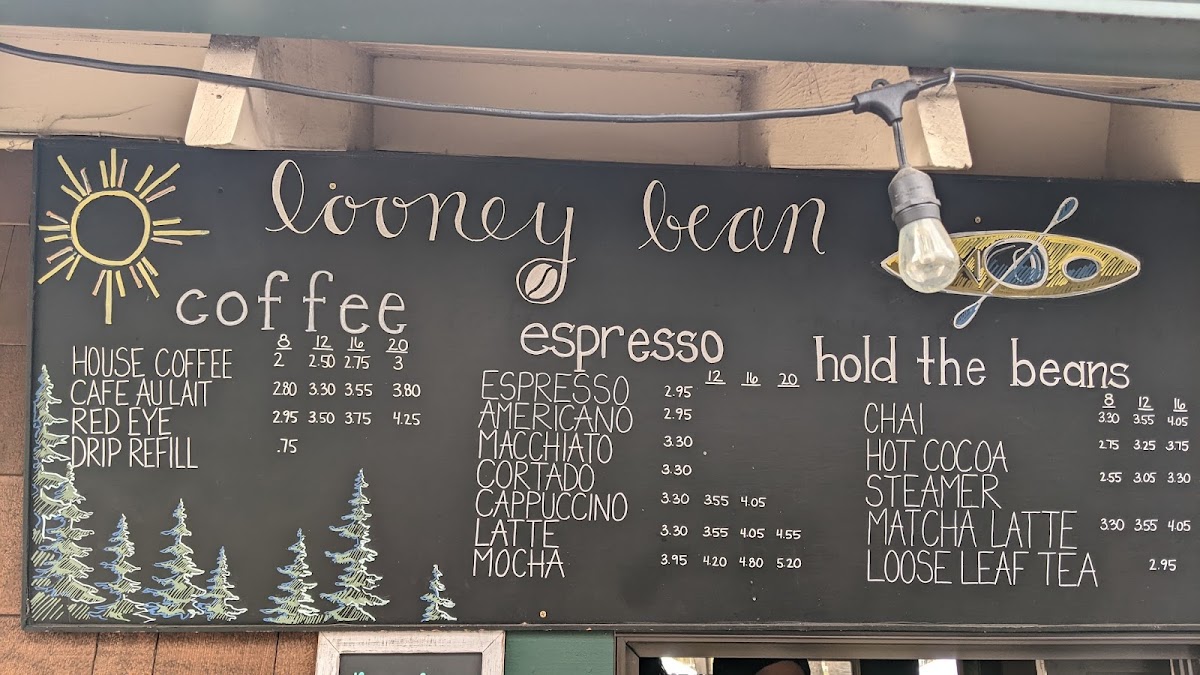 looney bean
coffee
8 12 16 20
HOUSE COFFEE 2 2.50 2.75 3
CAFE AU LAIT 2.80 3.30 3.55 3.80
RED EYE 2.95 3.50 3.75 4.25
DRIP REFILL .75
espresso
12 16 20
ESPRESSO 2.95
AMERICANO 2.95
MACCHIATO 3.30
CORTADO 3.30
CAPPUCCINO 3.30 3.55 4.05
LATTE 3.30 3.55 4.05 4.55
MOCHA 3.95 4.20 4.80 5.20
hold the beans
8 12 16
CHAI 3.30 3.55 4.05
HOT COCOA 2.75 3.25 3.75
STEAMER 2.55 3.05 3.30
MATCHA LATTE 3.30 3.55 4.05
LOOSE LEAF TEA 2.95